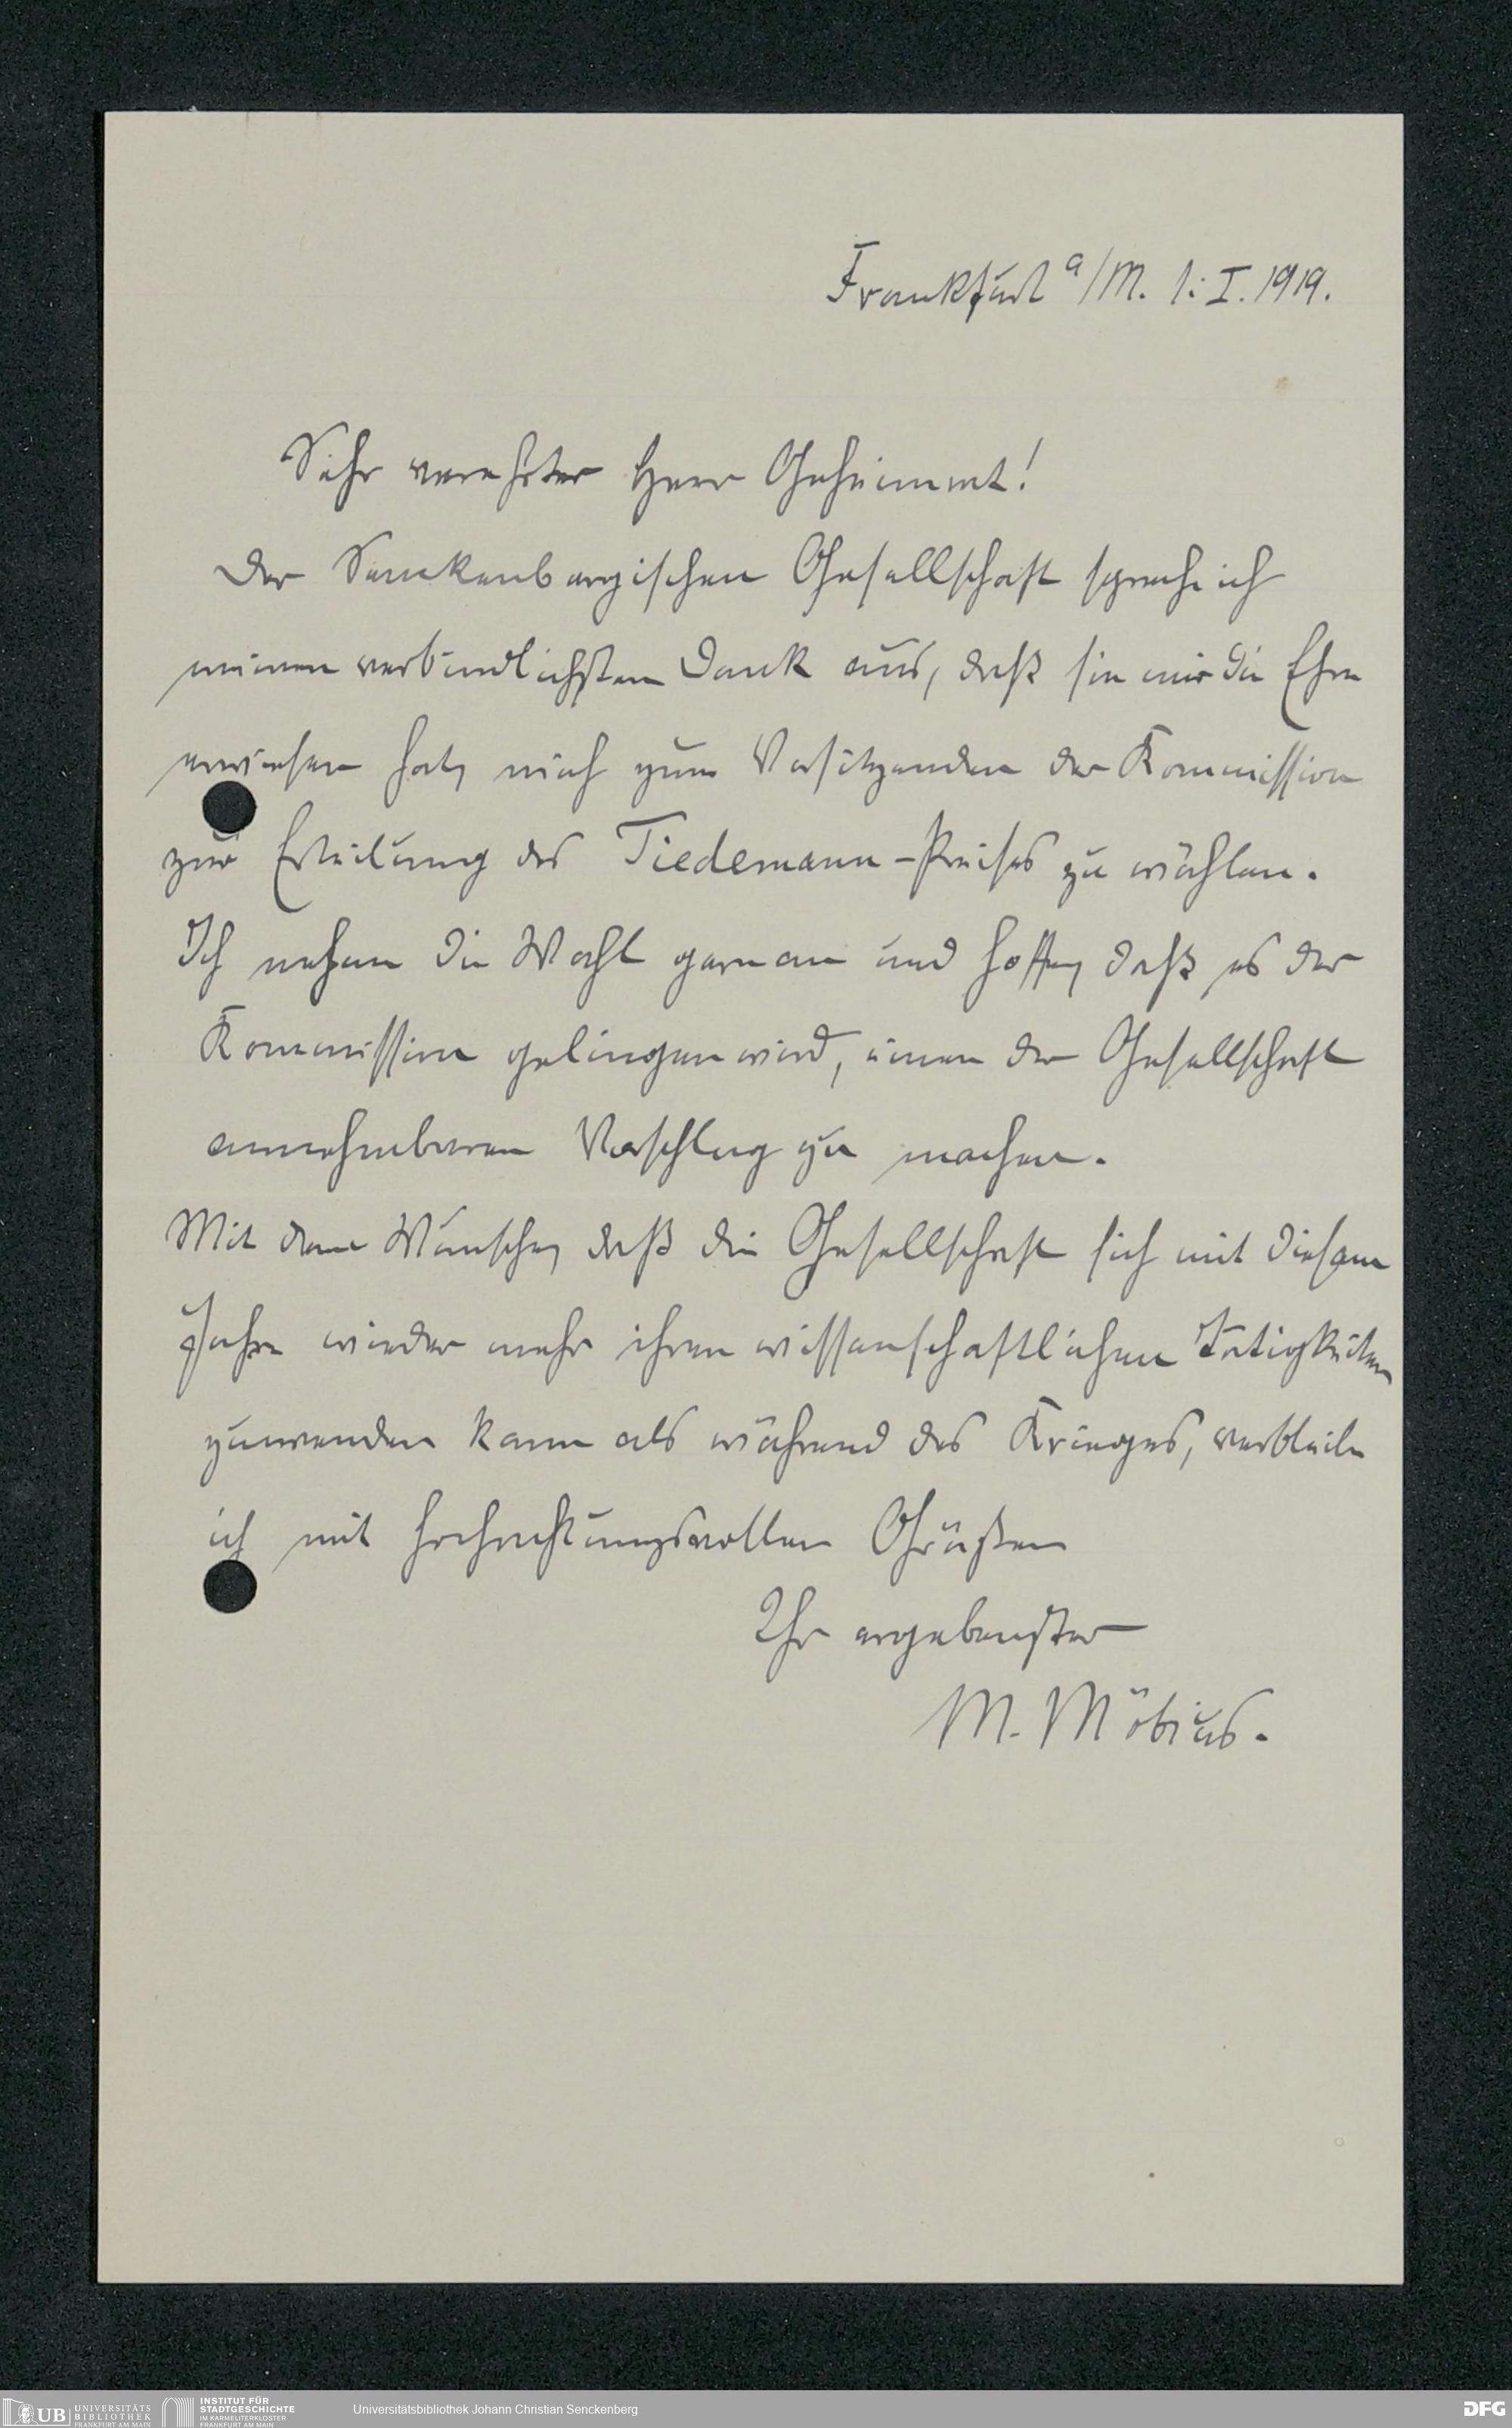 Frankfurt a/M. 1. I. 1919.
Sehr verehrter Herr Geheimrat!
Der Senckenbergischen Gesellschaft spreche ich
meinen verbindlichsten Dank aus, daß sie mir die Ehre
erwiesen hat, mich zum Vorsitzenden der Kommission
zur Erteilung des Tiedemann-Preises zu wählen.
Ich nehme die Wahl gern an und hoffe, daß es der
Kommission gelingen wird, einen der Gesellschaft
annehmbaren Vorschlag zu machen.
Mit dem Wunsche, daß die Gesellschaft sich mit diesem
Jahre wieder mehr ihren wissenschaftlichen Tätigkeiten
zuwenden kann als während des Krieges, verbleibe
ich mit hochachtungsvollen Grüßen
Ihr ergebenster
M. Möbius.
UB UNIVERSITÄTS
BIBLIOTHEK
FRANKFURT AM MAIN
INSTITUT FÜR
STADTGESCHICHTE
IM KARMELITERKLOSTER
FRANKFURT AM MAIN
Universitätsbibliothek Johann Christian Senckenberg
DFG